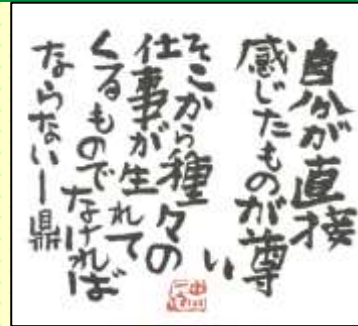 自分が直接
感じたものが尊
い
そこから種々の
仕事が生れて
くるものでなければ
ならないー鼎